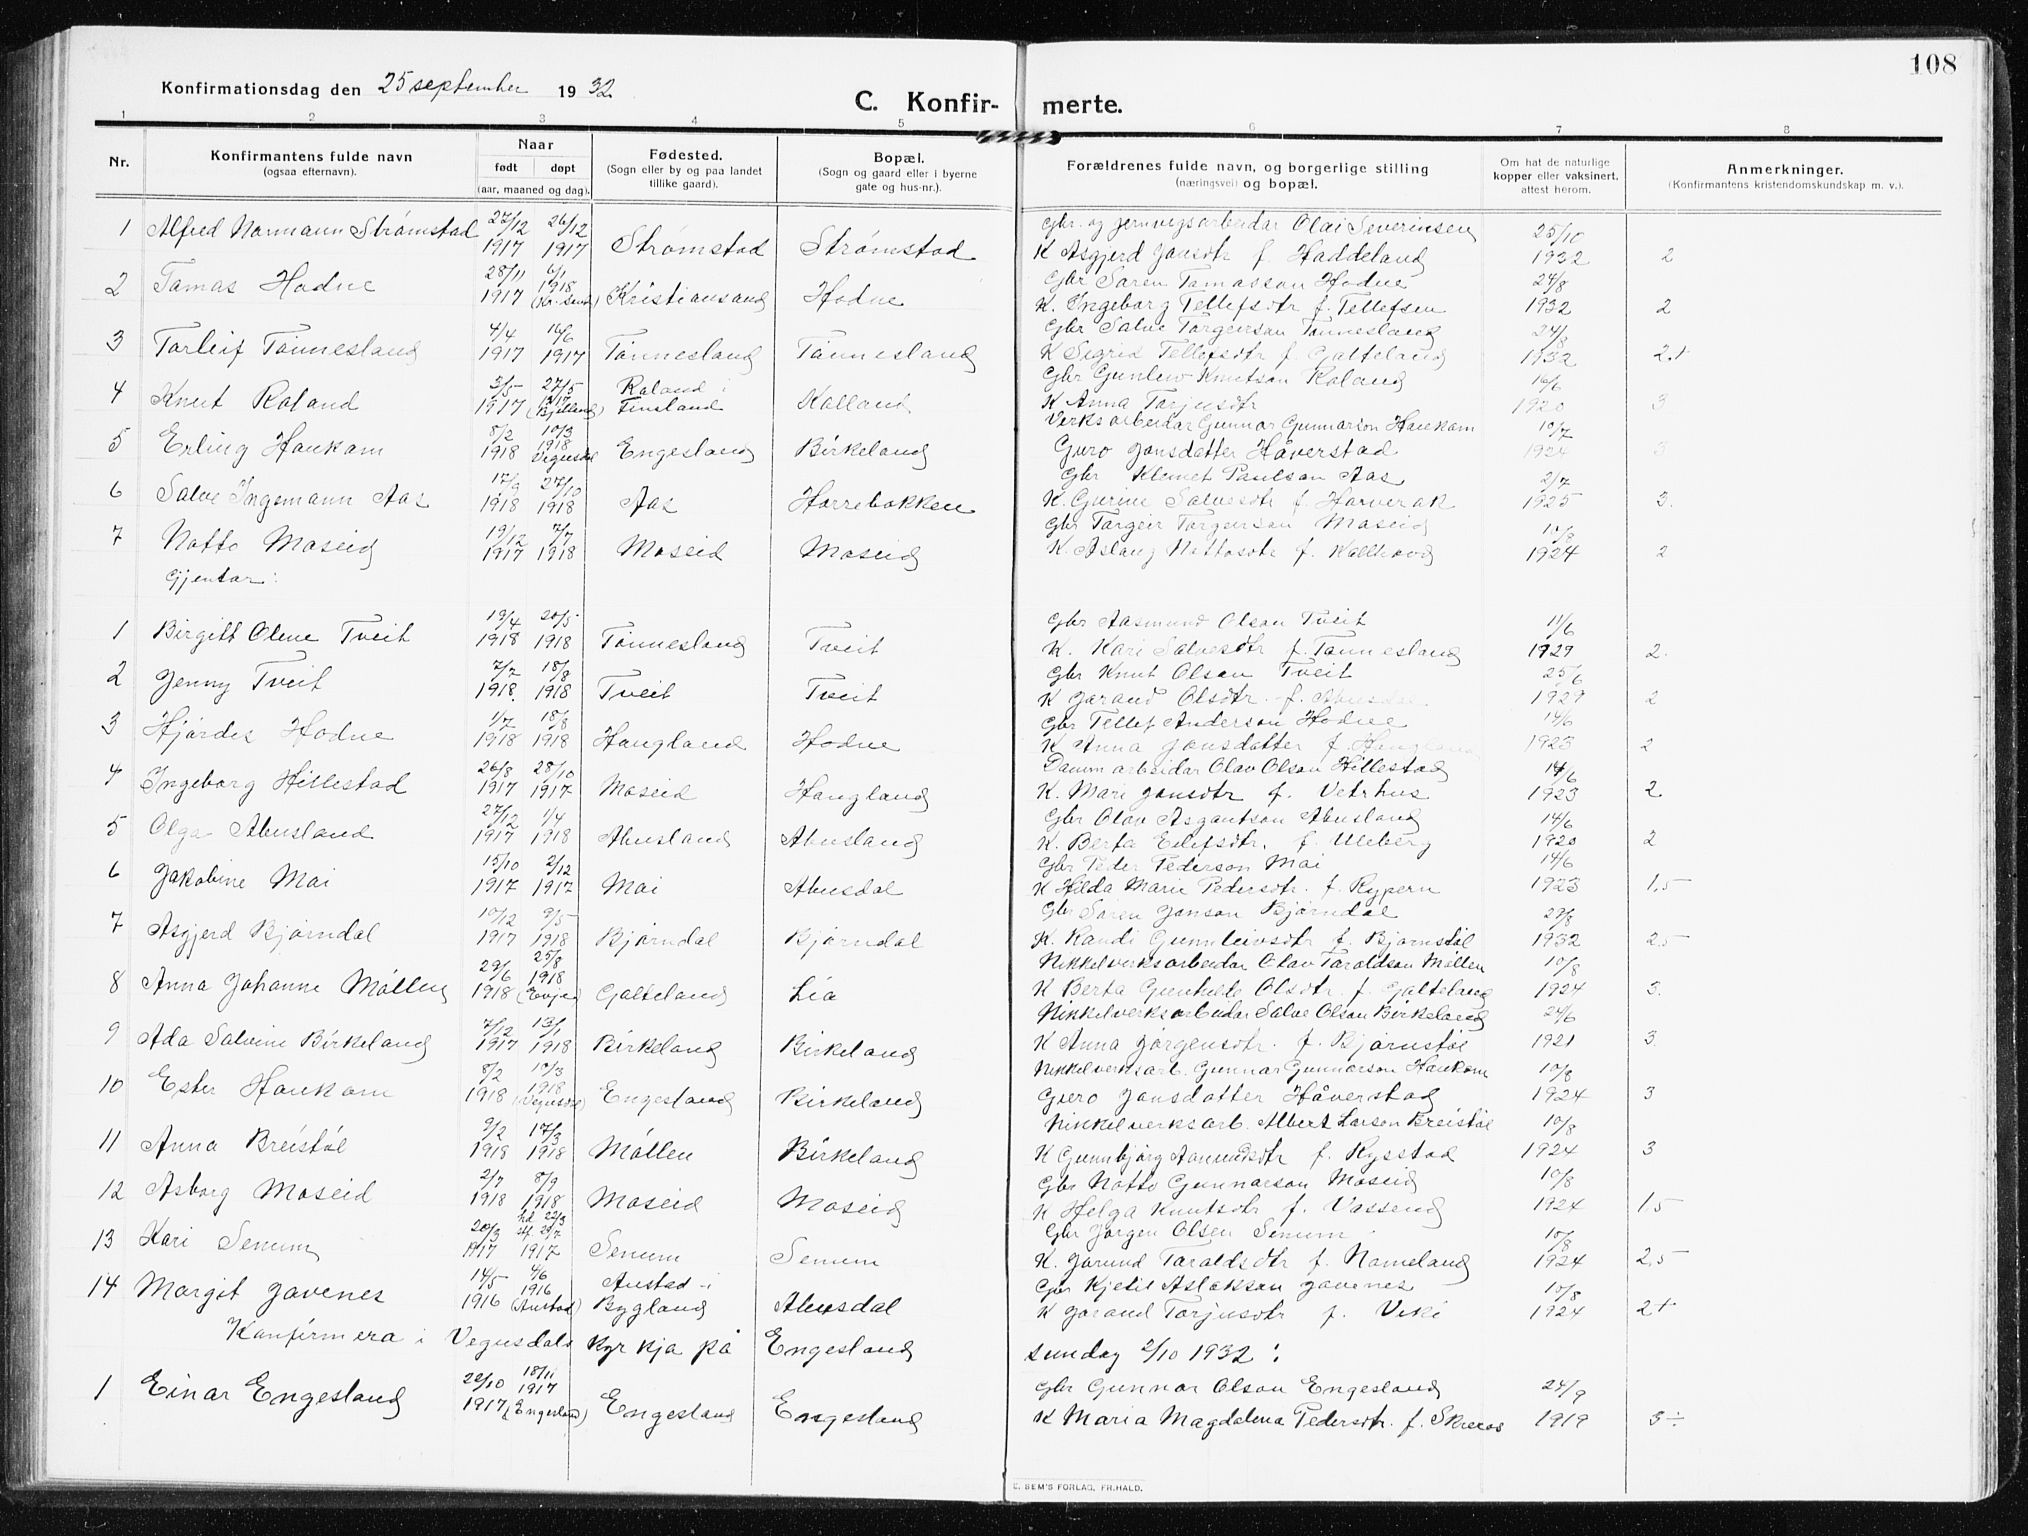 108
Konfirmationsdag den 25 september 1932
C. Konfir- merte.
1 2 3 4 5 6 7 8
Nr.
Konfirmantens fulde navn
(ogsaa efternavn).
Naar
født døpt
(aar, maaned og dag).
Fødested.
(Sogn eller by og paa landet
tillike gaard).
Bopæl.
(Sogn og gaard eller i byerne
gate og hus-nr.).
Forældrenes fulde navn, og borgerlige stilling
(næringsvei) og bopæl.
Om hat de naturlige
kopper eller vaksinert,
attest herom.
Anmerkninger.
(Konfirmantens kristendomskundskap m. v.).
1 Alfred Normann Strømstad 27/12 26/12 Gbr. og jernvegsarbeidar Olai Severinsen 25/10
1917 1917 Strømstad Strømstad K Asgjerd Jonsdtr f. Haddeland 1932 2
2 Tomas Hodne 28/11 6/1 1918 Gbr Søren Tomasson Hodne 24/8
1917 (Kr.sand) Kristiansand Hodne K. Ingeborg Tellefsdtr f. Tellefsen 1932 2
3 Torleif Tønnesland 4/4 16/6 Gbr Salve Torgeirson Tønnesland 24/8
1917 1917 Tønnesland Tønnesland K Sigrid Tellefsdtr f. Galteland 1932 2+
4 Knut Røland 3/5 27/5 Røland i Gbr Gunleiv Knutson Røland 16/6
1917 1917 (Bjelland) Finsland Kolland K Anna Torjusdtr 1920 3
5 Erling Haukom 8/2 10/3 Verksarbeidar Gunnar Gunnarson Haukom 10/7
1918 1918 Vegusdal Engesland Birkeland Guro Jonsdatter Håverstad 1924 3
6 Salve Ingemann Aas 17/9 27/10 Gbr Klemet Paulson Aas 2/7
1918 1918 Aas Horrebakken K. Gurine Salvesdtr f. Harverak 1925 3.
7 Notto Moseid 19/12 7/7 Gbr Torgeir Torgeirson Moseid 10/8
1917 1918 Moseid Moseid K. Aslaug Nottosdtr f. Kallhovd 1924 2
Gjentor:
1 Birgitt Oline Tveit 19/4 20/5 Gbr Aasmund Olson Tveit 11/6
1918 1918 Tønnesland Tveit K. Kari Salvesdtr f. Tønnesland 1929 2.
2 Jenny Tveit 7/7 18/8 Gbr Knut Olson Tveit 25/6
1918. 1918 Tveit Tveit K Jorand Olsdtr f. Abusdal 1929 2
3 Hjørdis Hodne 1/7 18/8 Gbr Tellef Anderson Hodne 14/6
1918 1918 Haugland Hodne K Anna Jonsdatter f. Haugland 1923 2
4 Ingeborg Hillestad 26/8 28/10 Dammarbeidar Olav Olson Hillestad 14/6
1917 1917 Moseid Haugland K. Mari Jonsdtr f. Vetrhus 1923 2
5 Olga Abusland 27/12 1/4 Gbr Olav Asgautson Abusland 14/6
1917 1918 Abusland Abusland K. Berta Eilefsdtr. f. Uleberg 1920 2
6 Jakobine Moi 15/10 2/12 Gbr Peder Pederson Moi 14/6
1917 1917 Moi Abusdal K Hilda Marie Pedersdtr. f. Rypern 1923 1,5
7 Asgjerd Bjørndal 10/12 9/5 Gbr Søren Jonson Bjørndal 29/8
1917 1918 Bjørndal Bjørndal K. Randi Gunnleivsdtr f. Bjørnstøl 1932 2,5
8 Anna Johanne Møllen 29/6 25/8 Nikkelverksarbeidar Olav Taraldson Møllen 10/8
1918 1918 (Evje) Galteland Lia K Berta Gunhilde Olsdtr. f. Galteland 1924 3.
9 Ada Salvine Birkeland 7/12 13/1 Nikkelverksarbeidar Salve Olson Birkeland 24/6
1917 1918 Birkeland Birkeland K Anna Jørgensdtr. f. Bjørnstøl 1921 3.
10 Ester Haukom 8/2 10/3 Nikkelverksarb. Gunnar Gunnarson Haukom 10/8
1918 1918 (Vegusdal) Engesland Birkeland Guro Jonsdatter Håverstad 1924 3
11 Anna Breistøl 9/2 17/3 Nikkelverksarb. Albert Larson Breistøl 10/8
1918 1918 Møllen Birkeland K Gunnbjørg Aanundsdtr f. Rysstad 1924 3
12 Asborg Moseid 2/7 8/9 Gbr Notto Gunnarson Moseid 10/8
1918 1918 Moseid Moseid K Helga Knutsdtr f. Vassend 1924 1,5
13 Kari Senum 20/3 hd 22/3 stf. 29/7 Gbr Jørgen Olsen Senum 10/8
1917 1917 Senum Senum K. Jorund Taraldsdtr f. Nomeland 1924 2,5
14 Margit Jovenes 14/5 4/6 Austad i Gbr Kjetil Aslakson Jovenes 10/8
1916 1916 (Austad) Bygland Abusdal K Jorand Torjusdtr f. Viki 1924 2+
Konfirmera i Vegusdals kyrkja på Engesland sundag 2/10 1932:
1 Einar Engesland 22/10 18/11 Gbr Gunnar Olson Engesland 24/9
1917 1917 (Engesland) Engesland Engesland K Maria Magdalena Pedersdtr. f. Skreros 1919 3÷
E. SEM'S FORLAG, FR.HALD.